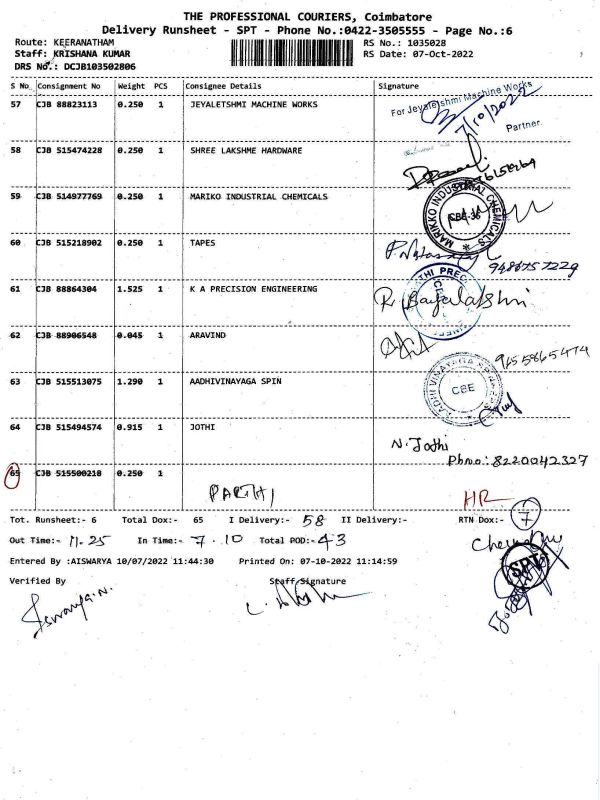 THE PROFESSIONAL COURIERS, Coimbatore
Delivery Runsheet - SPT - Phone No.:0422-3505555 - Page No.:6
Route: KEERANATHAM RS No.: 1035028
Staff: KRISHANA KUMAR RS Date: 07-Oct-2022
DRS No.: DCJB103502806
S No Consignment No Weight PCS Consignee Details Signature
57 CJB 88823113 0.250 1 JEYALETSHMI MACHINE WORKS
For Jeyaletshmi Machine Works
7/10/2022
Partner.
58 CJB 515474228 0.250 1 SHREE LAKSHME HARDWARE
59 CJB 514977769 0.250 1 MARIKO INDUSTRIAL CHEMICALS
MARIKKO INDUSTRIAL CHEMICALS
CBE-35
60 CJB 515218902 0.250 1 TAPES
9486757229
61 CJB 88864304 1.525 1 K A PRECISION ENGINEERING
R. Vijayalakshmi
62 CJB 88906548 0.045 1 ARAVIND
9655865474
63 CJB 515513075 1.290 1 AADHIVINAYAGA SPIN
CBE
64 CJB 515494574 0.915 1 JOTHI
N. Jothi
Ph no: 8220042327
65 CJB 515500218 0.250 1
PARTHI
HR
Tot. Runsheet:- 6 Total Dox:- 65 I Delivery:- 58 II Delivery:- RTN Dox:- 7
Out Time:- 11.25 In Time:- 7.10 Total POD:- 43
Entered By :AISWARYA 10/07/2022 11:44:30 Printed On: 07-10-2022 11:14:59
Verified By Staff Signature
SPV